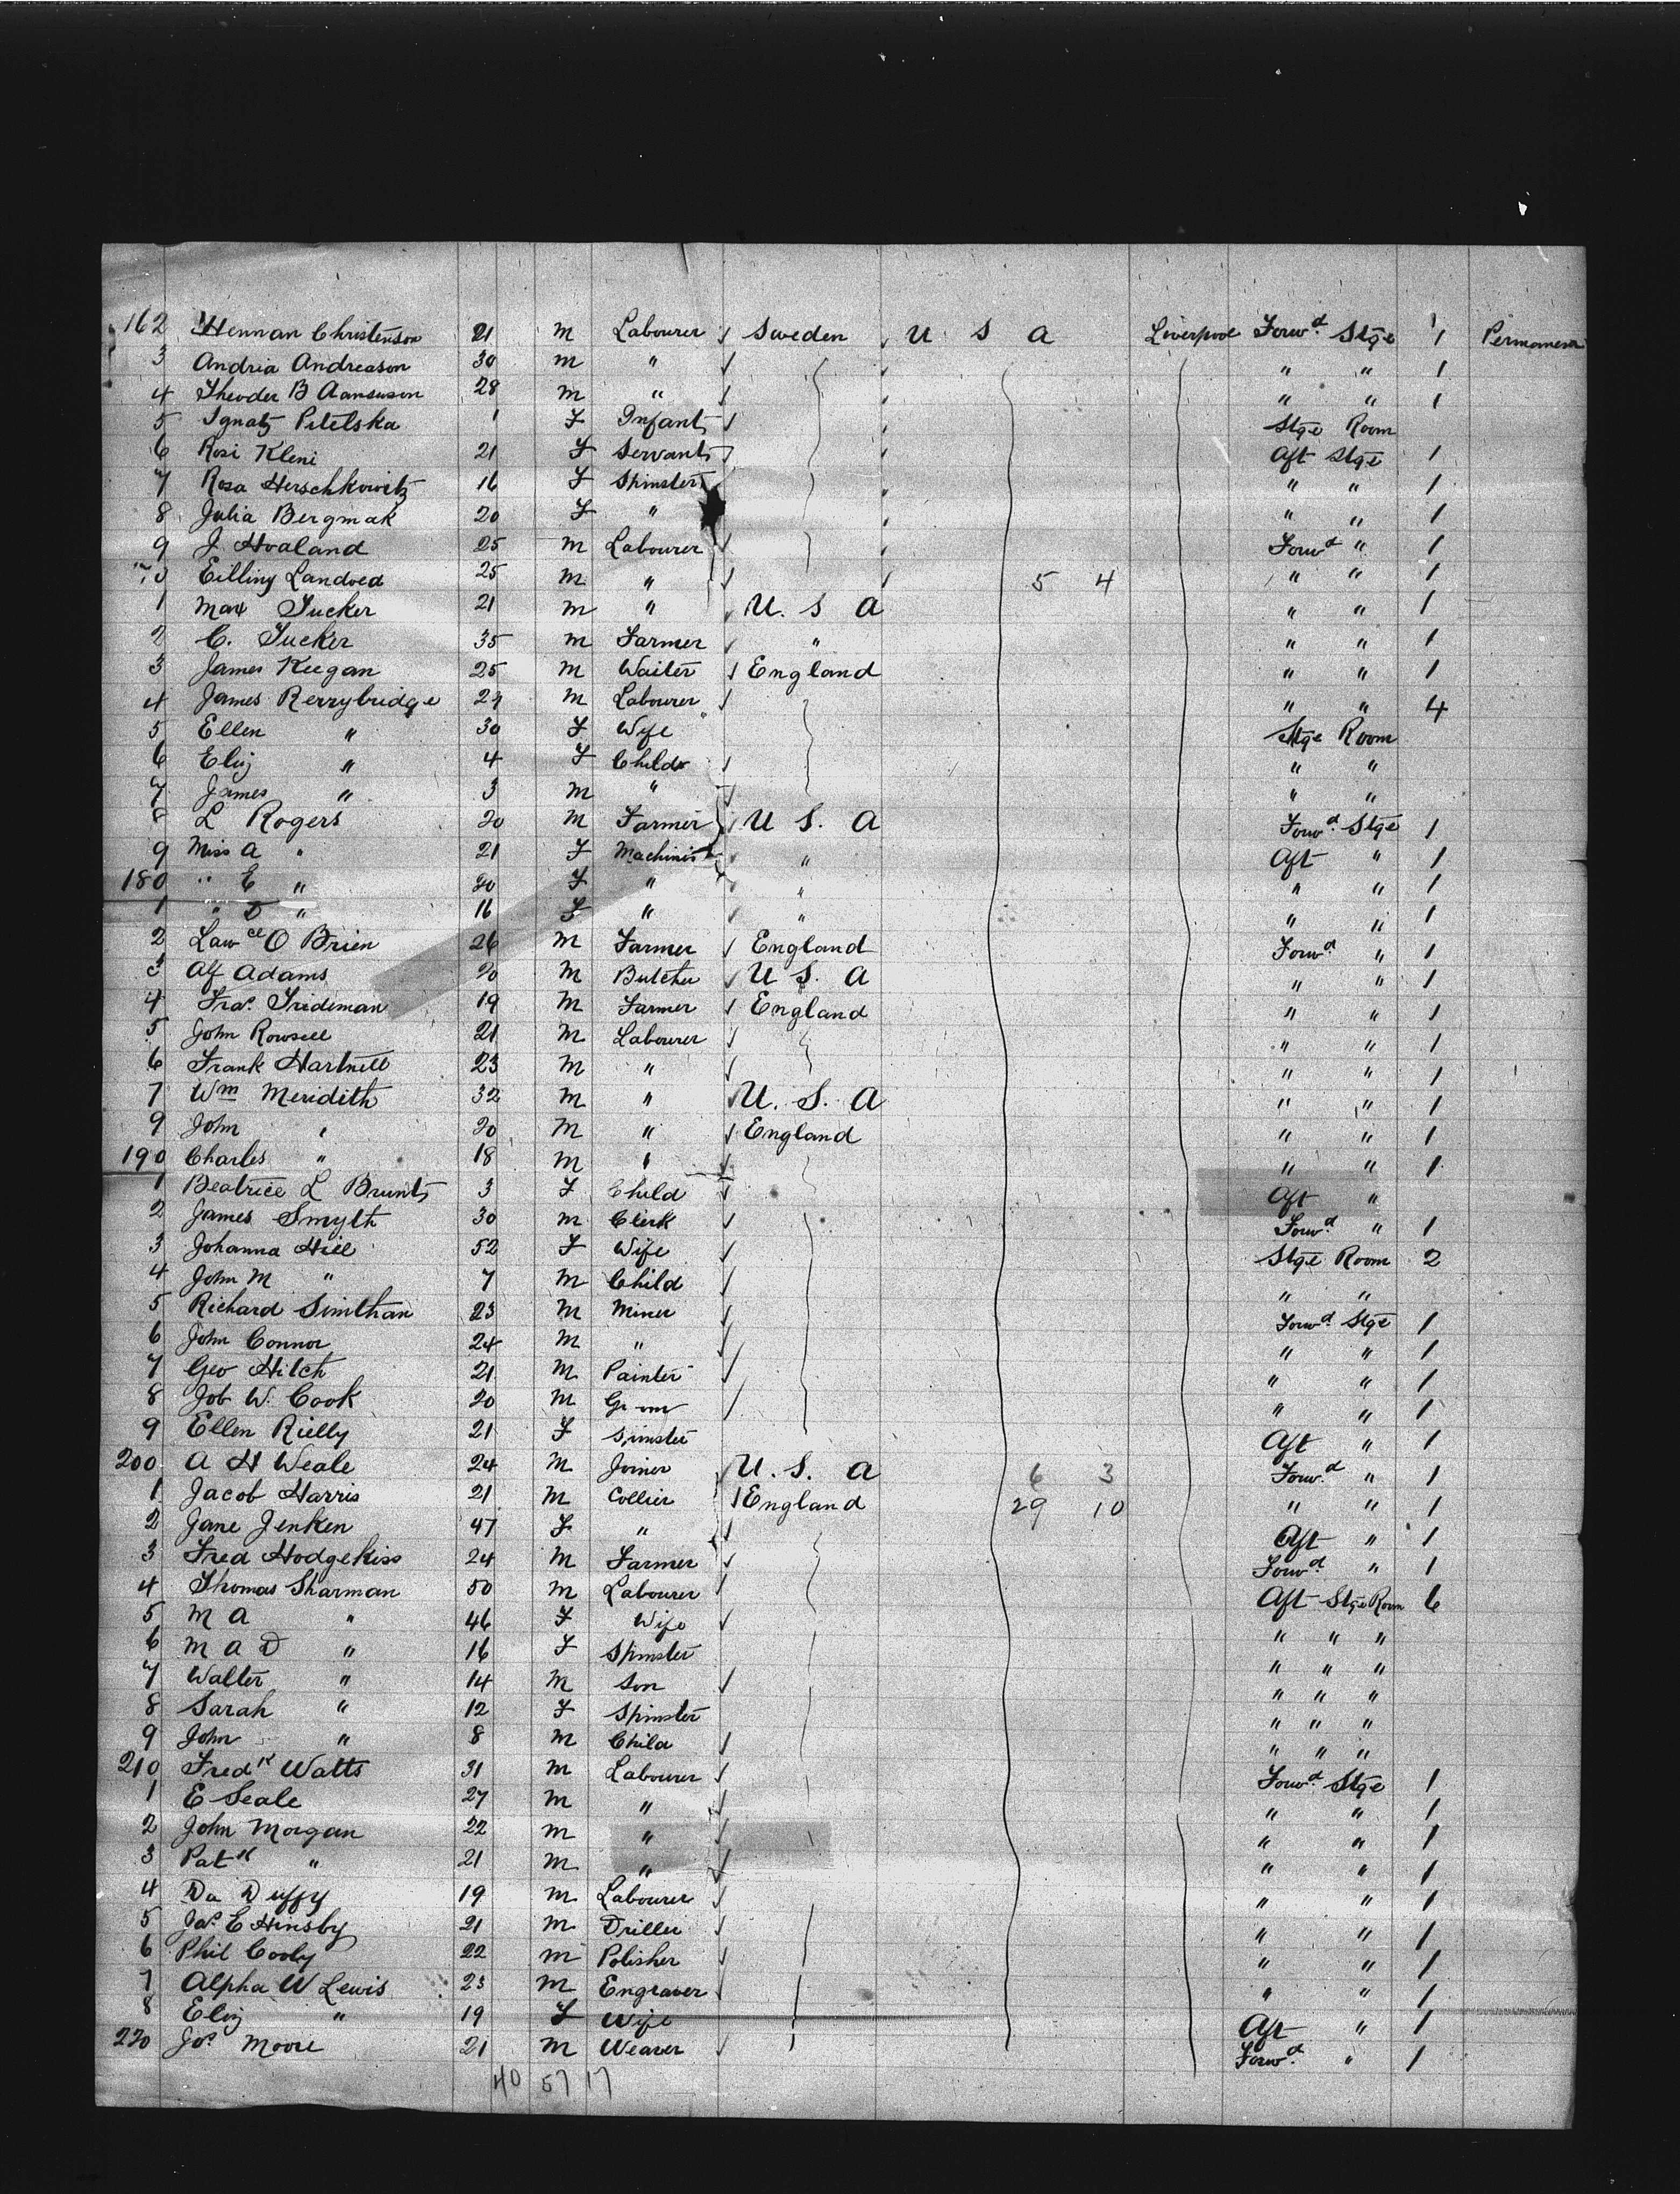 162 Hennan Christenson 21 m Labourer Sweden U S A Liverpool Forwd Stge 1 Permanent
3 Andria Andreason 30 m " " " 1
4 Theoder B Aanseson 28 m " " " 1
5 Ignatz Pitelska 1 F Infant Stge Room
6 Rosi Kleni 21 F Servant Aft Stge 1
7 Rosa Herschkowitz 16 F Spinster " " 1
8 Julia Bergmak 20 F " " " 1
9 J. Hvaland 25 m Labourer Forwd " 1
170 Eilling Landved 25 m " 5 4 " " 1
1 Max Tucker 21 m " U. S A " " 1
2 C. Tucker 35 m Farmer " " " 1
3 James Keegan 25 m Waiter England " " 1
4 James Rerrybridge 29 m Labourer " " 4
5 Ellen " 30 F Wife Stge Room
6 Eliz " 4 F Child " "
7 James " 3 m " " "
8 L Rogers 20 m Farmer U S. A Forwd Stge 1
9 Miss A " 21 F Machinist " Aft " 1
180 " E " 20 F " " " " 1
1 " D " 16 F " " " " 1
2 Lawce O Brien 26 m Farmer England Forwd " 1
3 Alf Adams 20 m Butcher U S. A " " 1
4 Fras. Frideman 19 m Farmer England " " 1
5 John Rowsell 21 m Labourer " " 1
6 Frank Hartnett 23 m " " " 1
7 Wm Meridith 32 m " U. S. A " " 1
9 John " 20 m " England " " 1
190 Charles " 18 m " " " 1
1 Beatrice L Brunt 3 F Child Aft "
2 James Smyth 30 m Clerk Forwd " 1
3 Johanna Hill 52 F Wife Stge Room 2
4 John M " 7 m Child " "
5 Richard Simthan 23 m Miner Forwd Stge 1
6 John Connor 24 m " " " 1
7 Geo Hitch 21 m Painter " " 1
8 Job W. Cook 20 m " " 1
9 Ellen Rielly 21 F Spinster Aft " 1
200 A H Weale 24 m Joiner U. S. A 6 3 Forwd " 1
1 Jacob Harris 21 m Collier England 29 10 " " 1
2 Jane Jenken 47 F " Aft " 1
3 Fred Hodgekiss 24 m Farmer Forwd " 1
4 Thomas Sharman 50 m Labourer Aft Stge Room 6
5 M A " 46 F Wife " " "
6 M A D " 16 F Spinster " " "
7 Walter " 14 m Son " " "
8 Sarah " 12 F Spinster " " "
9 John " 8 m Child " " "
210 Fredk Watts 31 m Labourer Forwd Stge 1
1 E Seale 27 m " " " 1
2 John Morgan 22 m " " " 1
3 Patk " 21 m " " " 1
4 Da Duffy 19 m Labourer " " 1
5 Jas. E Hinsby 21 m Driller " " 1
6 Phil Cooly 22 m Polisher " " 1
7 Alpha W Lewis 23 m Engraver " " 1
8 Eliz " 19 F Wife Aft " 1
220 Jos. Moore 21 m Weaver Forwd " 1
40 57 17